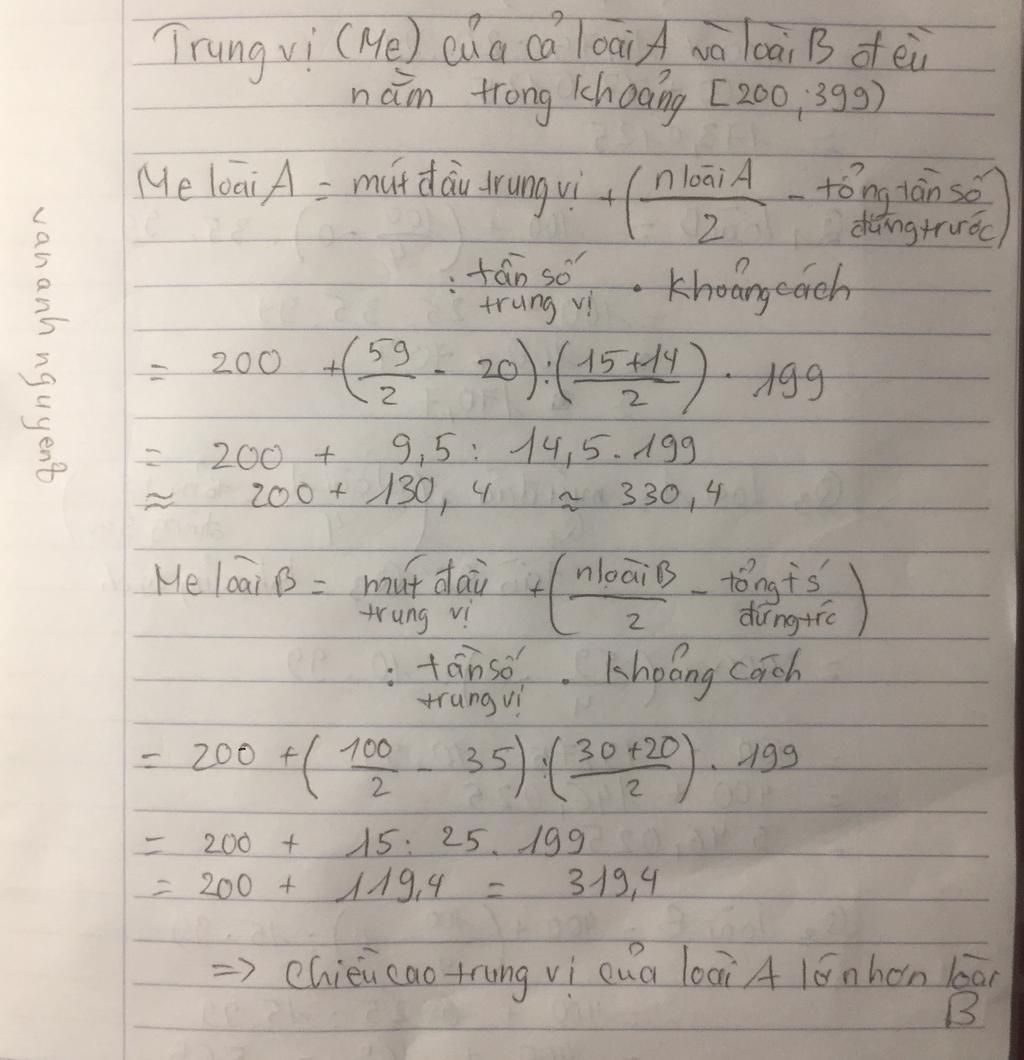 Trung vị (Me) của cả loài A và loài B đều
nằm trong khoảng [200;399)
Me loài A = mút đầu trung vị + (n loài A / 2 - tổng tần số đứng trước)
: tần số trung vị . khoảng cách
= 200 + (59/2 - 20) : (15+14/2) . 199
= 200 + 9,5 : 14,5 . 199
≈ 200 + 130,4 ≈ 330,4
Me loài B = mút đầu trung vị + (n loài B / 2 - tổng t số đứng trc)
: tần số trung vị . khoảng cách
= 200 + (100/2 - 35) : (30+20/2) . 199
= 200 + 15 : 25 . 199
= 200 + 119,4 = 319,4
=> chiều cao trung vị của loài A lớn hơn loài
B
van anh nguyent